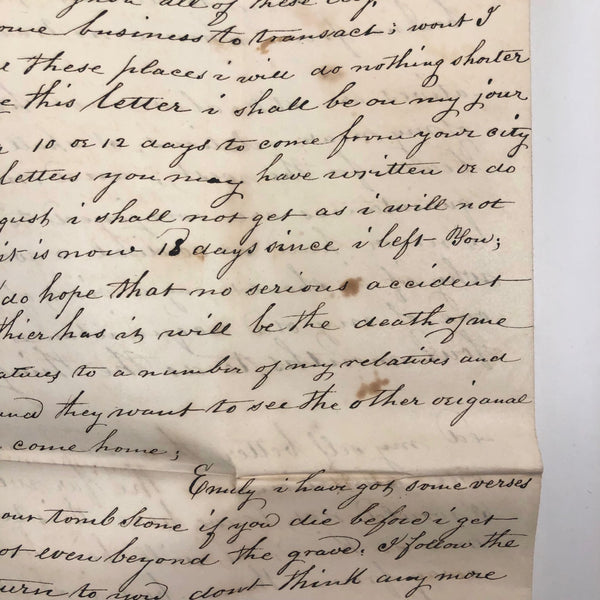 all of these
business to transact; wont I
these places i will do nothing shorter
this letter i shall be on my jour
10 or 12 days to come from your city
letters you may have written or do
i shall not get as i will not
it is now 18 days since i left You;
do hope that no serious accident
thier has it will be the death of me
to a number of my relatives and
and they want to see the other origanal
come home;
Emily i have got some verses
our tomb Stone if you die before i get
even beyond the grave. I follow the
to you dont think any more